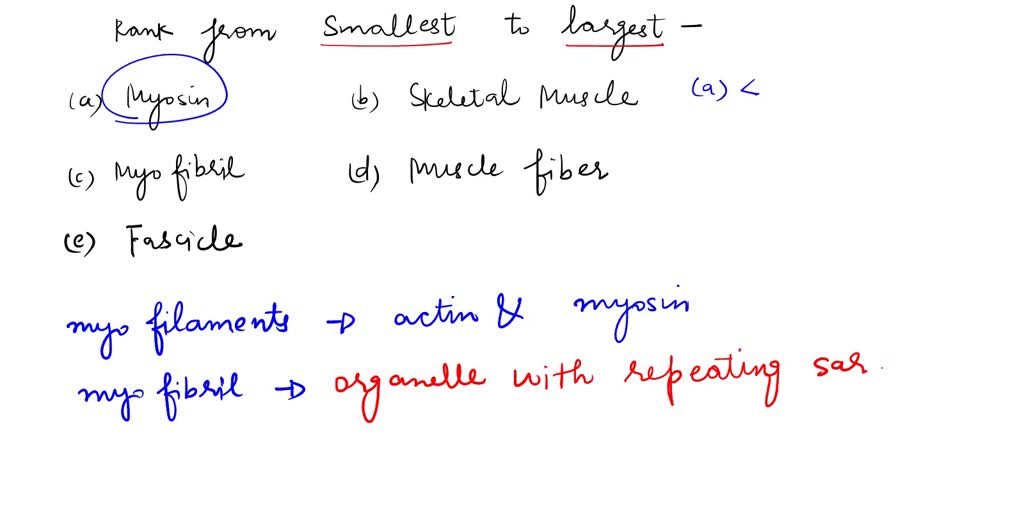 Rank from Smallest to largest -
(a) Myosin (b) Skeletal Muscle (a) <
(c) Myo fibril (d) Muscle fiber
(e) Fascicle
myo filaments → actin & myosin
myo fibril → organelle with repeating sar